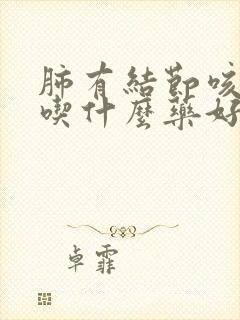 肺有結節咳
喫什麼藥好
卓霏